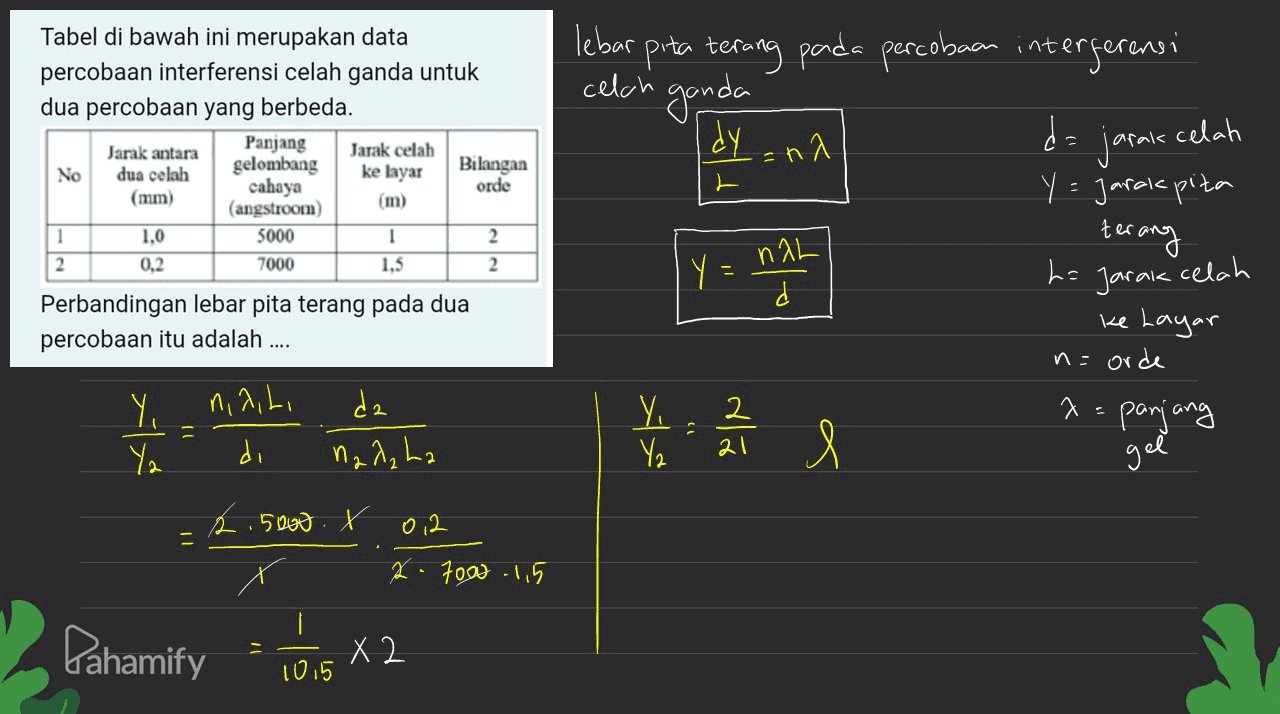 Tabel di bawah ini merupakan data
percobaan interferensi celah ganda untuk
dua percobaan yang berbeda.
No | Jarak antara dua celah (mm) | Panjang gelombang cahaya (angstroom) | Jarak celah ke layar (m) | Bilangan orde
1 | 1,0 | 5000 | 1 | 2
2 | 0,2 | 7000 | 1,5 | 2
Perbandingan lebar pita terang pada dua
percobaan itu adalah ....
lebar pita terang pada percobaan interferensi
celah ganda
dy/L = nλ
y = nλL/d
d = jarak celah
y = jarak pita
terang
L = jarak celah
ke Layar
n = orde
λ = panjang
gel
y₁/y₂ = n₁λ₁L₁/d₁ . d₂/n₂λ₂L₂
= 2.5000.1/1 . 0,2/2.7000.1,5
= 1/10,5 x 2
y₁/y₂ = 2/21
Pahamify